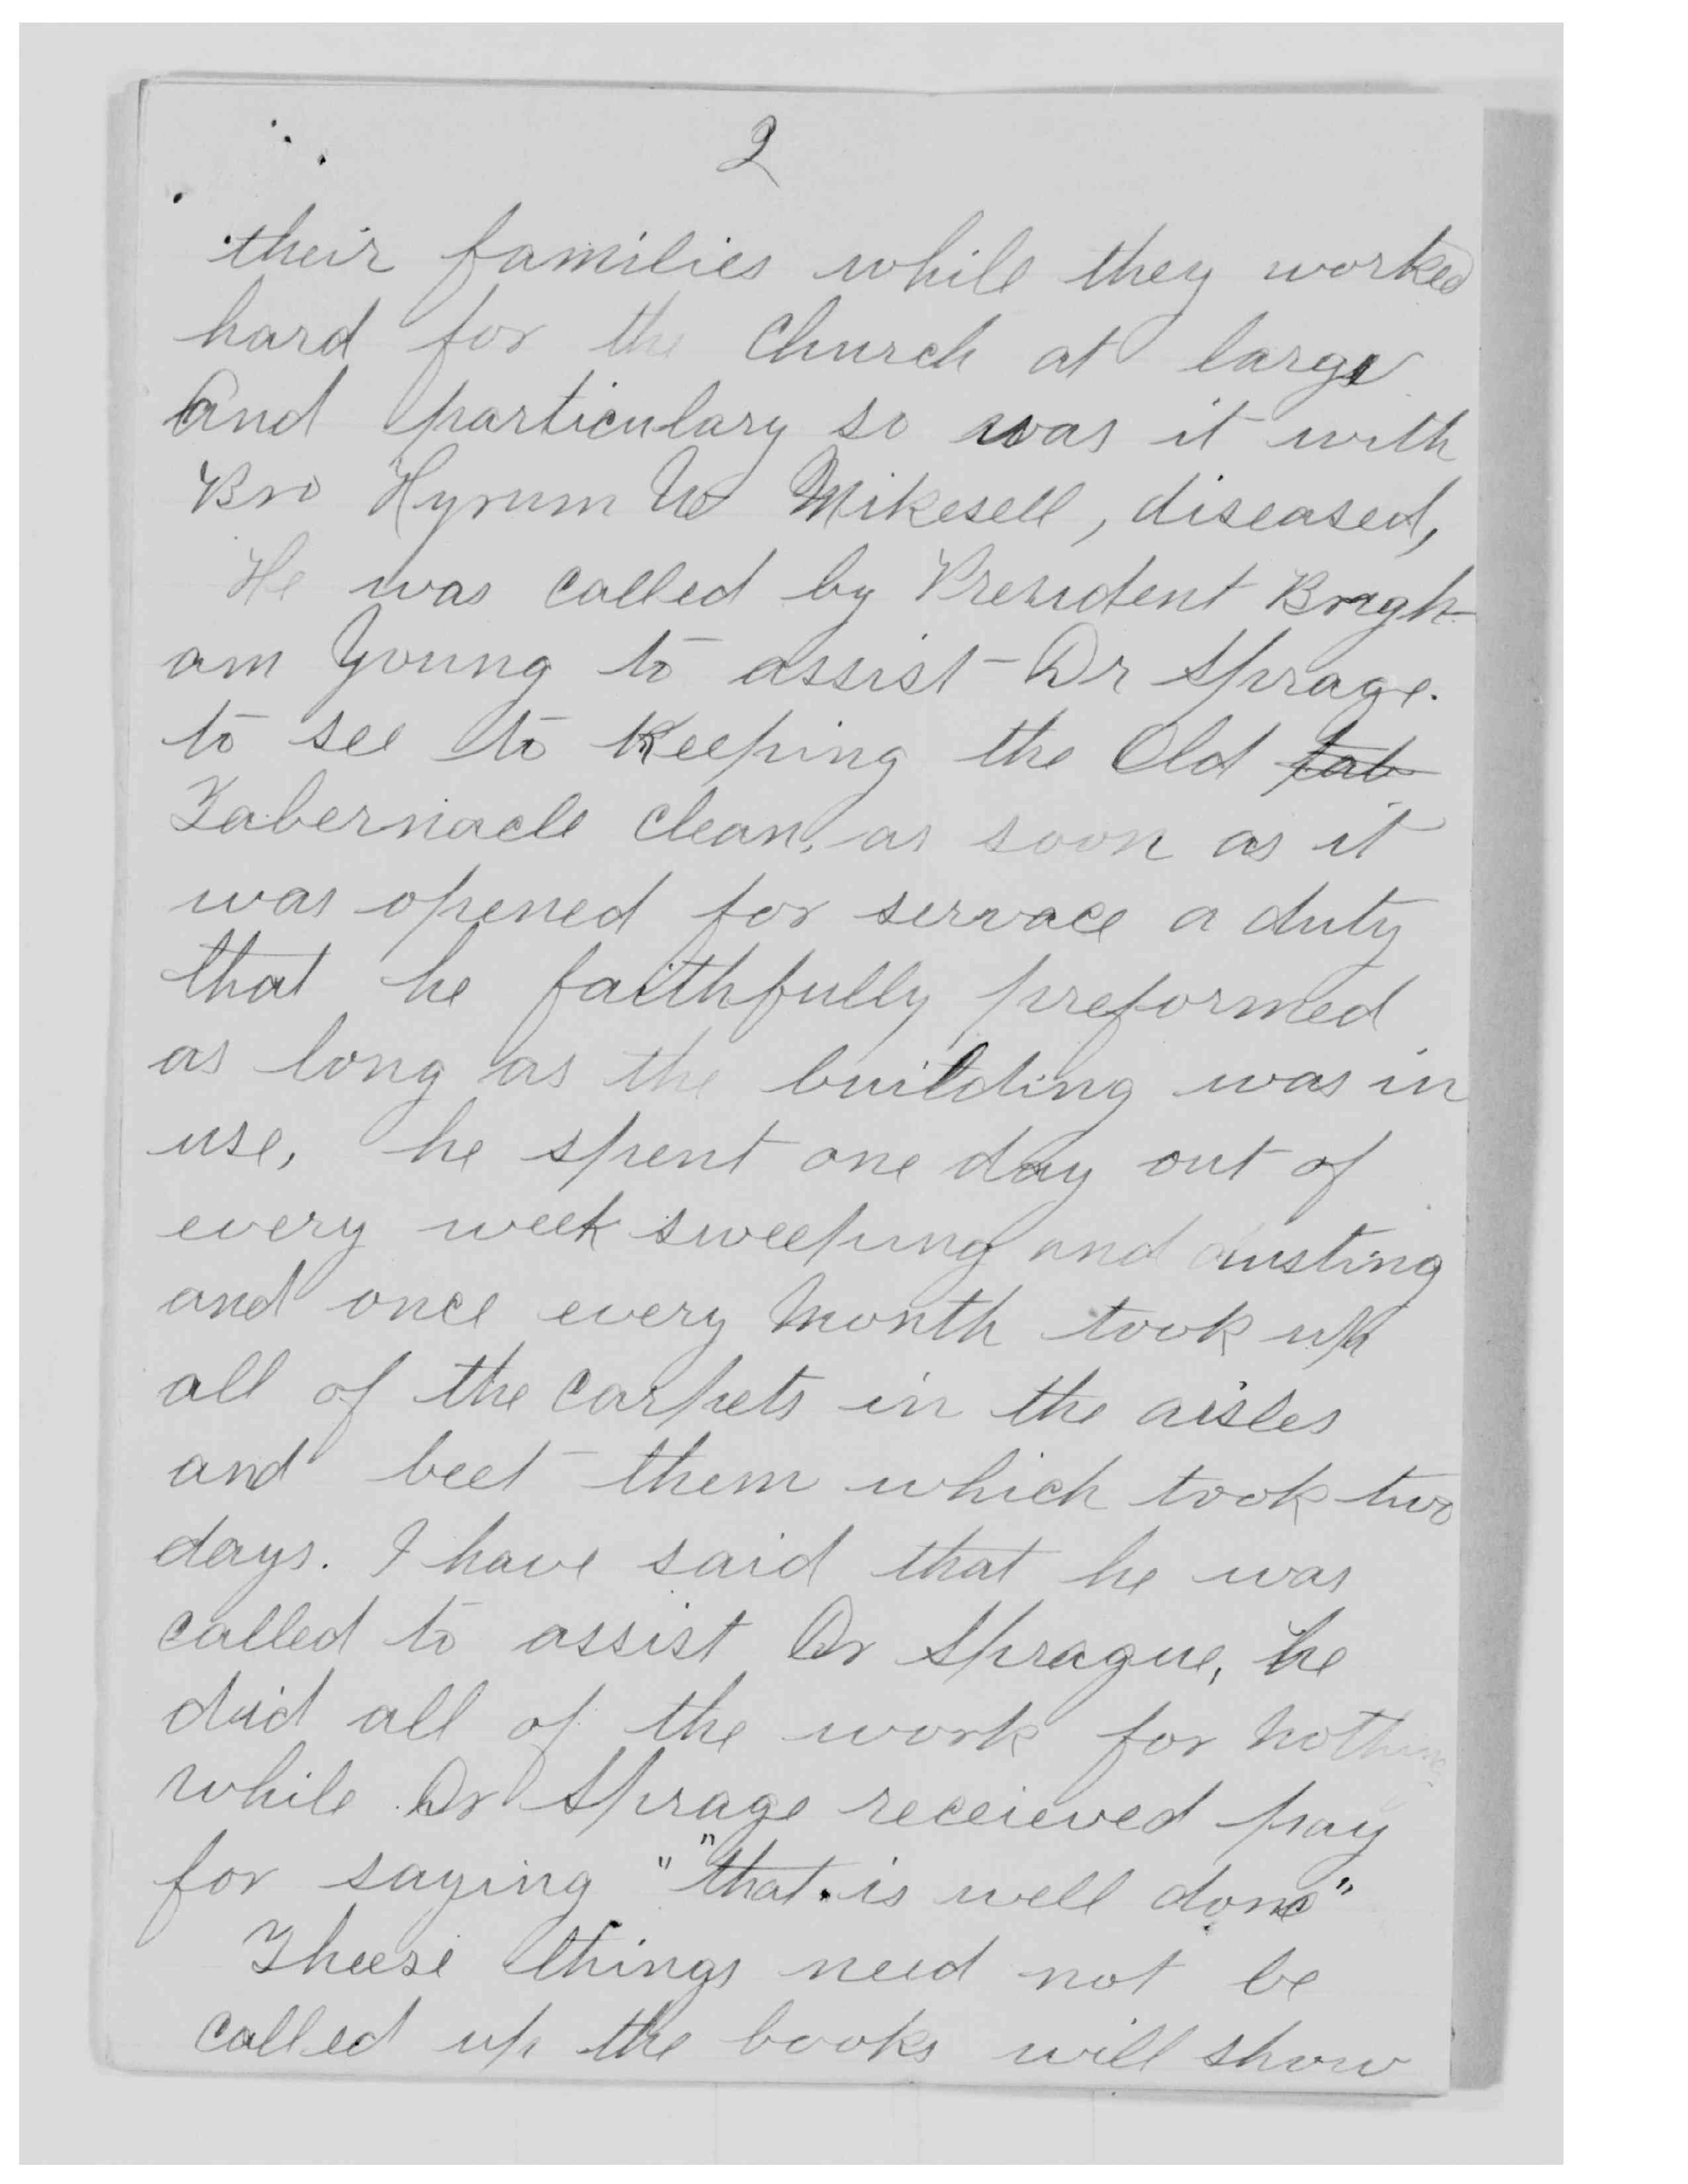 2
their families while they worked
hard for the Church at large
and particulary so was it with
Bro Hyrum W Mikesell, diseased,
He was called by President Brigh-
am Young to assist Dr Sprage.
to see to Keeping the Old tab
Tabernacle clean, as soon as it
was opened for servace a duty
that he faithfully preformed
as long as the building was in
use, he spent one day out of
every week sweeping and dusting
and once every Month took up
all of the carpets in the aisles
and beet them which took two
days. I have said that he was
called to assist Dr Sprague, he
did all of the work for Nothing
while Dr Sprage receieved pay
for saying " "that is well done"
Theese things need not be
called up the books will show